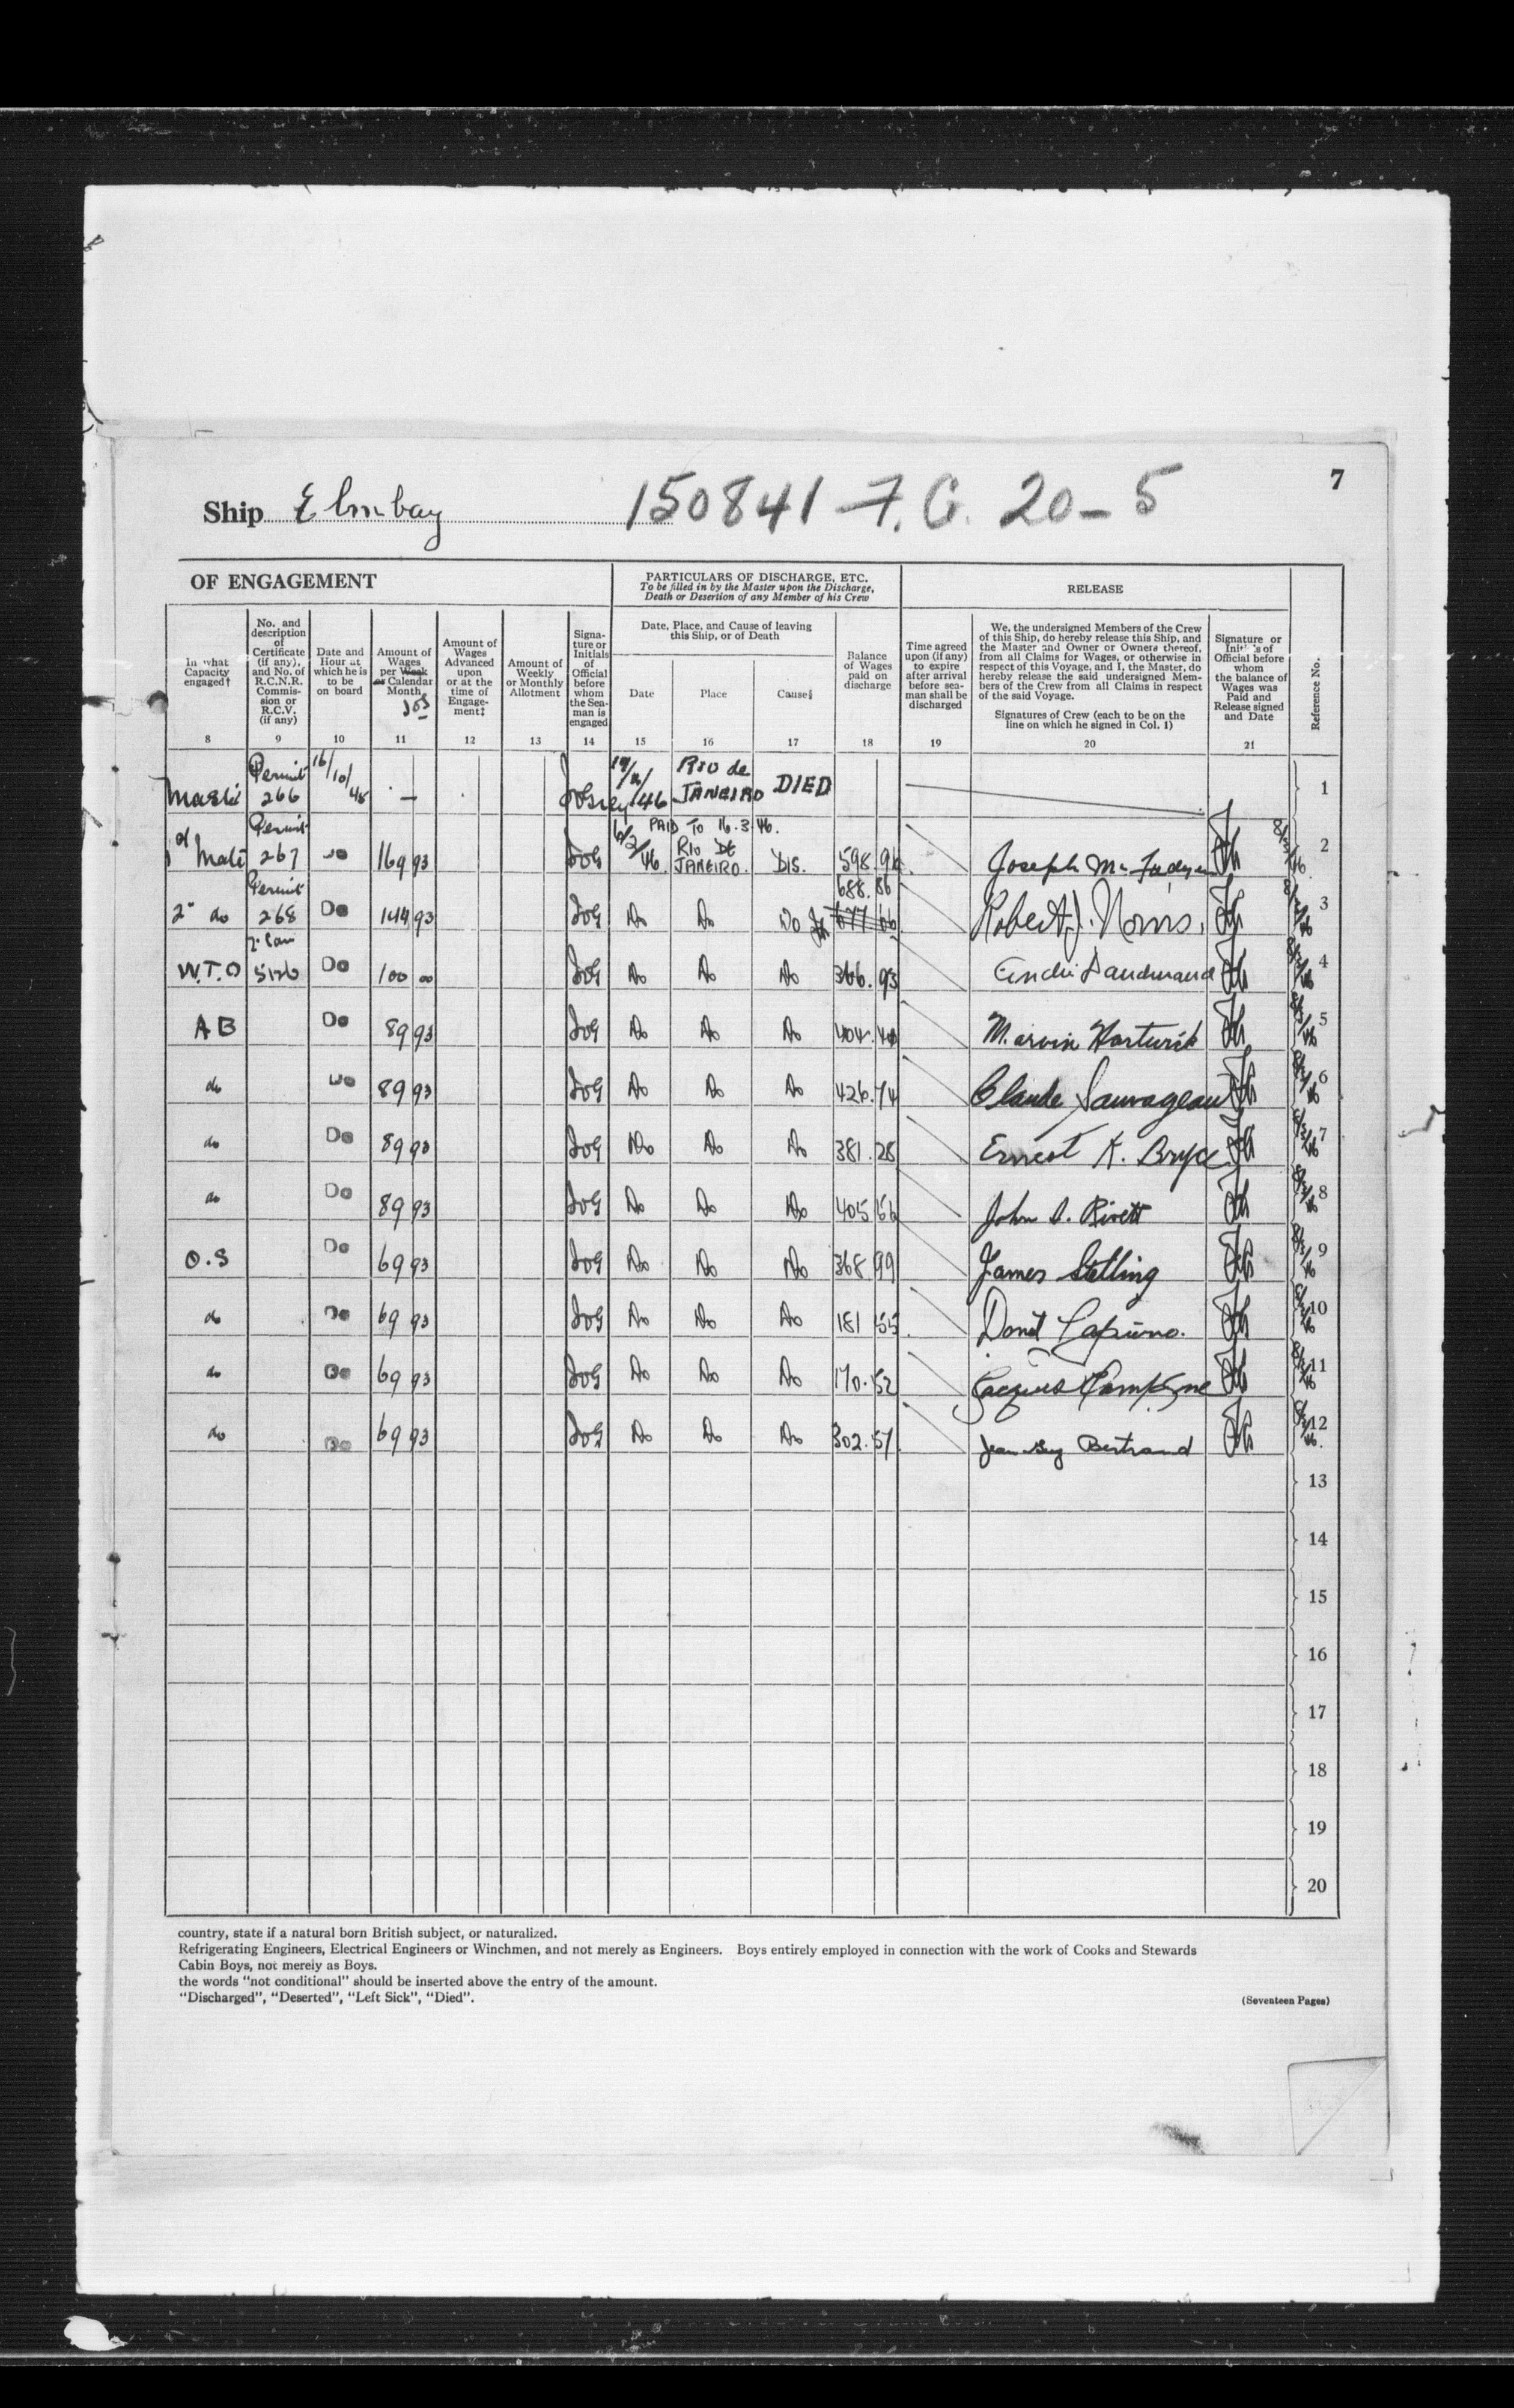 7
Ship Elmbay 150841 F.G. 20-5
OF ENGAGEMENT
PARTICULARS OF DISCHARGE, ETC.
To be filled in by the Master upon the Discharge,
Death or Desertion of any Member of his Crew
RELEASE
In what Capacity engaged†
No. and description of Certificate (if any), and No. of R.C.N.R. Commission or R.C.V. (if any)
Date and Hour at which he is to be on board
Amount of Wages per Week or Calendar Month
Amount of Wages Advanced upon or at the time of Engagement‡
Amount of Weekly or Monthly Allotment
Signature or Initials of Official before whom the Seaman is engaged
Date, Place, and Cause of leaving this Ship, or of Death
Date
Place
Cause§
Balance of Wages paid on discharge
Time agreed upon (if any) to expire after arrival before seaman shall be discharged
We, the undersigned Members of the Crew of this Ship, do hereby release this Ship, and the Master and Owner or Owners thereof, from all Claims for Wages, or otherwise in respect of this Voyage, and I, the Master, do hereby release the said undersigned Members of the Crew from all Claims in respect of the said Voyage.
Signatures of Crew (each to be on the line on which he signed in Col. 1)
Signature or Initials of Official before whom the balance of Wages was Paid and Release signed and Date
Reference No.
8 9 10 11 12 13 14 15 16 17 18 19 20 21
Permit 266 — RIO de JANEIRO DIED 1
PAID TO 16.3.46.
Mate Permit 267 169 93 RIO DE JANEIRO. DIS. 598.96 Joseph McFadyen 2
2nd do Permit 268 Do 144 93 Do Do Do 677 66 688.86 Robert J. Norris. 3
W.T.O 5126 Do 100 00 Do Do Do 366.93 4
AB Do 89 93 Do Do Do 404.40 Marvin Hartwick 5
do Do 89 93 Do Do Do 426.74 Claude Sauvageau 6
do Do 89 93 Do Do Do 381.28 Ernest K. Bryce 7
do Do 89 93 Do Do Do 405 66 John S. Rivett 8
O.S Do 69 93 Do Do Do 368 99 James Stelling 9
do Do 69 93 Do Do Do 181 55 10
do Do 69 93 Do Do Do 170.52 Jacques 11
do Do 69 93 Do Do Do 302.57 Jean Guy Bertrand 12
13
14
15
16
17
18
19
20
country, state if a natural born British subject, or naturalized.
Refrigerating Engineers, Electrical Engineers or Winchmen, and not merely as Engineers. Boys entirely employed in connection with the work of Cooks and Stewards
Cabin Boys, not merely as Boys.
the words "not conditional" should be inserted above the entry of the amount.
"Discharged", "Deserted", "Left Sick", "Died".
(Seventeen Pages)